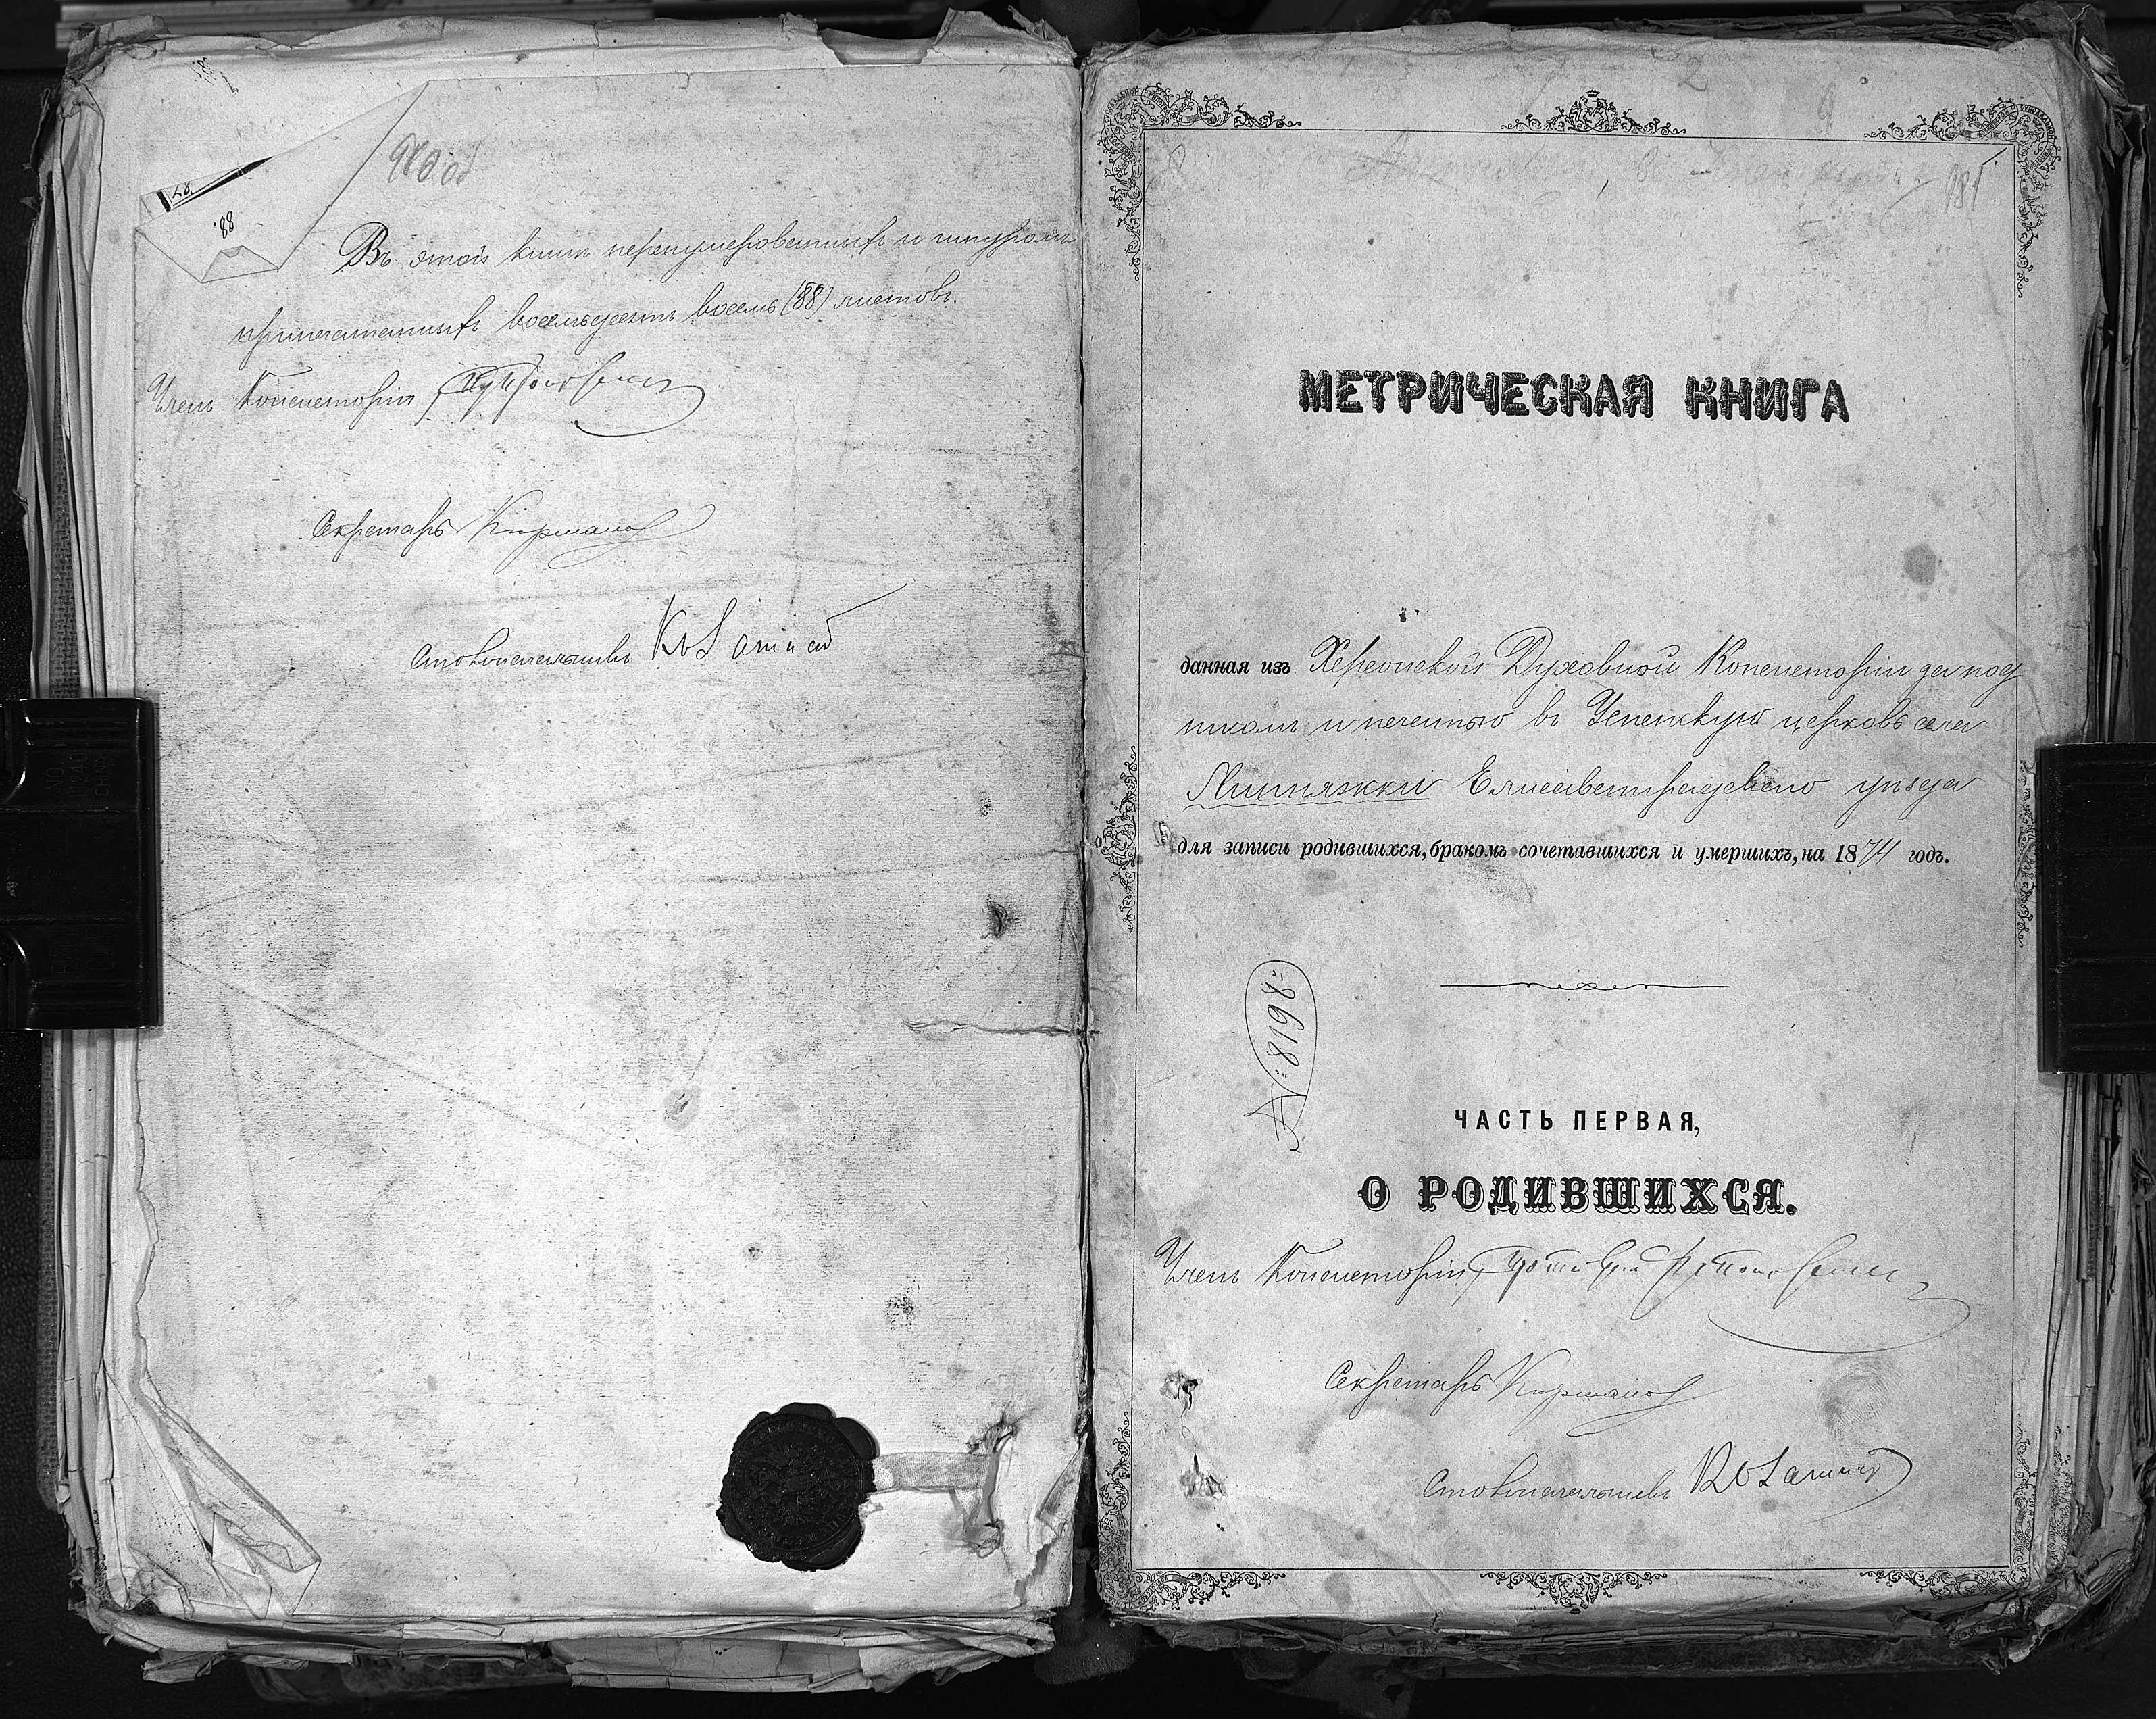 980 об
88
Въ этой книгѣ перенумерованныхъ и шнуромъ
припечатанныхъ восемьдесятъ восемь (88) листовъ.
Членъ Консисторіи
Секретарь
Столоначальникъ
981
МЕТРИЧЕСКАЯ КНИГА
данная изъ Херсонской Духовной Консисторіи за под
писомъ и печатью въ Успенскую церковь села
Липняжки Елисаветградскаго уѣзда
для записи родившихся, бракомъ сочетавшихся и умершихъ, на 1874 годъ.
№ 8198
ЧАСТЬ ПЕРВАЯ,
О РОДИВШИХСЯ.
Членъ Консисторіи
Секретарь
Столоначальникъ